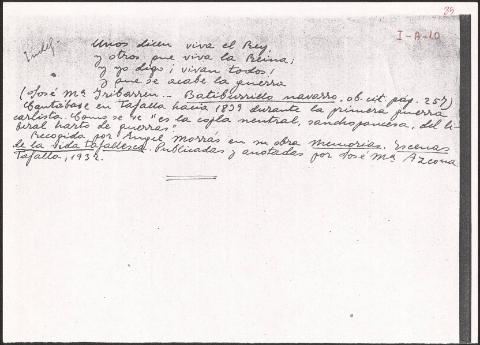 39
I-A-10
Unos dicen viva el Rey,
y otros que viva la Reina;
y yo digo ¡vivan todos!
y que se acabe la guerra
(José Mª Iribarren.- Batiburrillo navarro, ob. cit. pág. 257)
Cantábase en Tafalla hacia 1839 durante la primera guerra
carlista. Como se ve "es la copla neutral, sanchopancesa, del li-
beral harto de guerras".
Recogida por Angel Morrás en su obra Memorias. Escenas
de la vida tafallesa. Publicadas y anotadas por José Mª Azcona
Tafalla, 1932.